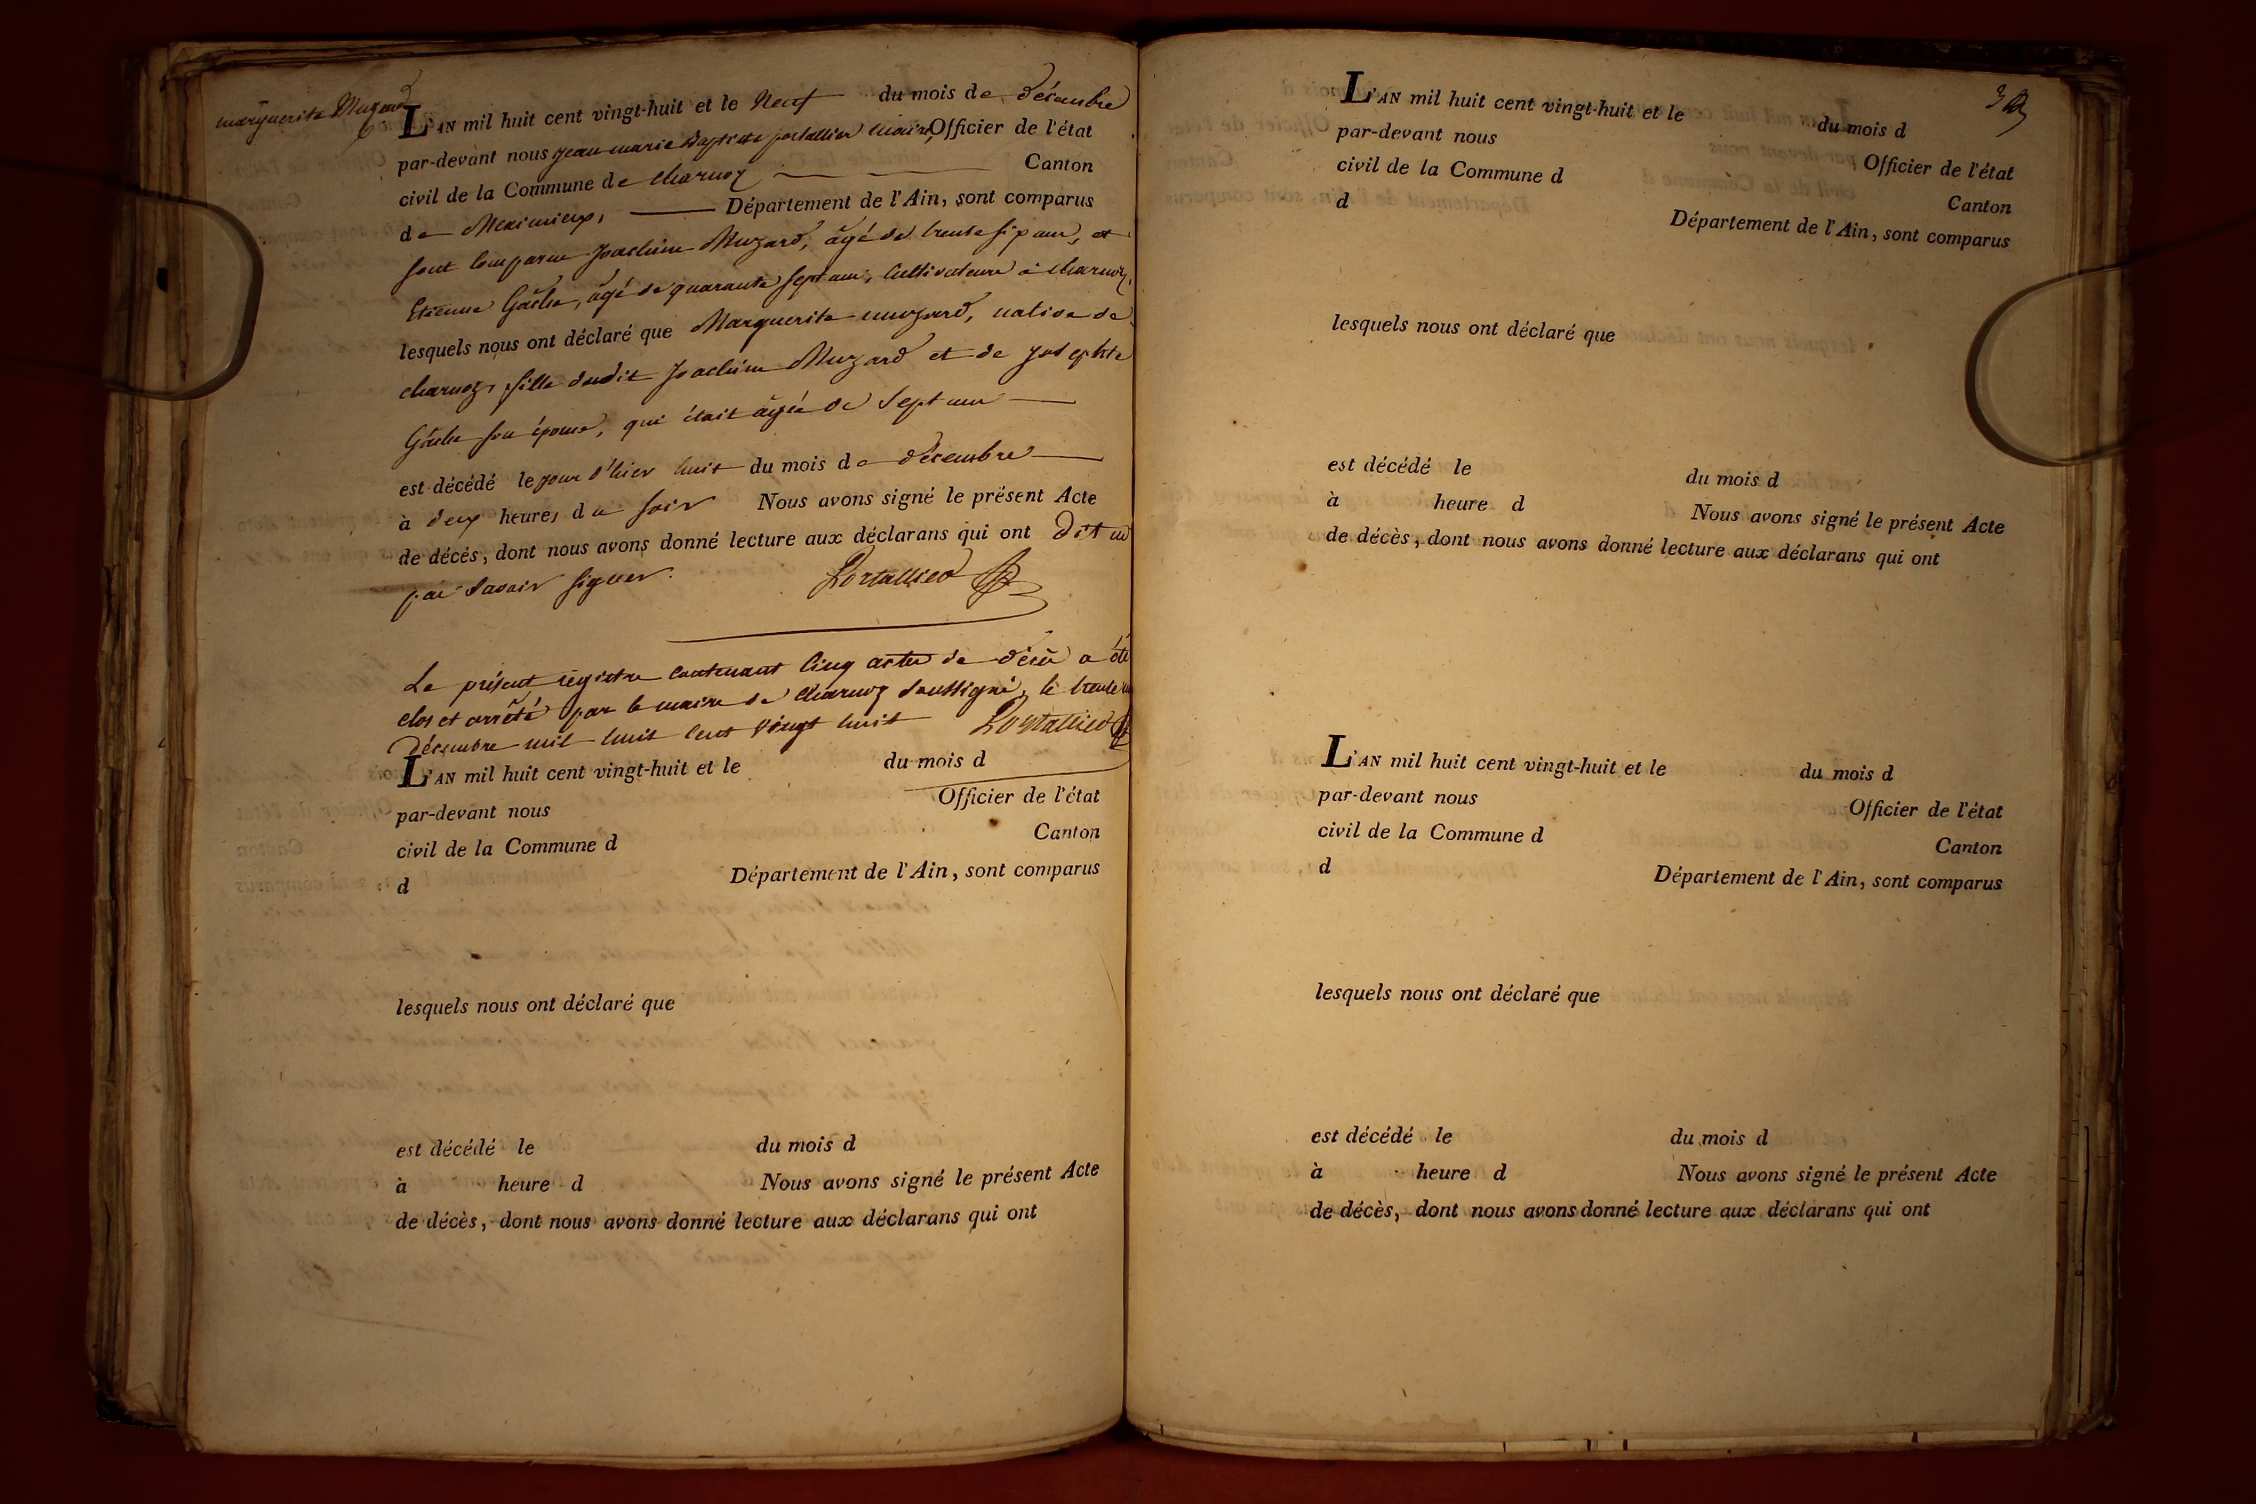 marguerite Muzard
L'AN mil huit cent vingt-huit et le Neuf du mois de décembre
par-devant nous jean marie Baptiste portallier maire, Officier de l'état
civil de la Commune de charnoz Canton
de Meximieux, Département de l'Ain, sont comparus
sont comparus Joachim Muzard, âgé de trente six ans, et
Etienne Gâche, âgé de quarante sept ans, cultivateurs à charnoz,
lesquels nous ont déclaré que Marguerite muzard, native de
charnoz, fille dudit Joachim Muzard et de josephte
Gâche son épouse, qui était âgée de sept ans
est décédé le jour d'hier huit du mois de décembre
à deux heures du soir Nous avons signé le présent Acte
de décès, dont nous avons donné lecture aux déclarans qui ont dit ne
pas savoir signer. Portallier
Le présent registre contenant cinq actes de décès a été
clos et arrêté par le maire de charnoz soussigné, le trente un
Décembre mil huit cent vingt huit Portallier
L'AN mil huit cent vingt-huit et le du mois d
par-devant nous Officier de l'état
civil de la Commune d Canton
d Département de l'Ain, sont comparus
lesquels nous ont déclaré que
est décédé le du mois d
à heure d Nous avons signé le présent Acte
de décès, dont nous avons donné lecture aux déclarans qui ont
3
L'AN mil huit cent vingt-huit et le du mois d
par-devant nous Officier de l'état
civil de la Commune d Canton
d Département de l'Ain, sont comparus
lesquels nous ont déclaré que
est décédé le du mois d
à heure d Nous avons signé le présent Acte
de décès, dont nous avons donné lecture aux déclarans qui ont
L'AN mil huit cent vingt-huit et le du mois d
par-devant nous Officier de l'état
civil de la Commune d Canton
d Département de l'Ain, sont comparus
lesquels nous ont déclaré que
est décédé le du mois d
à heure d Nous avons signé le présent Acte
de décès, dont nous avons donné lecture aux déclarans qui ont